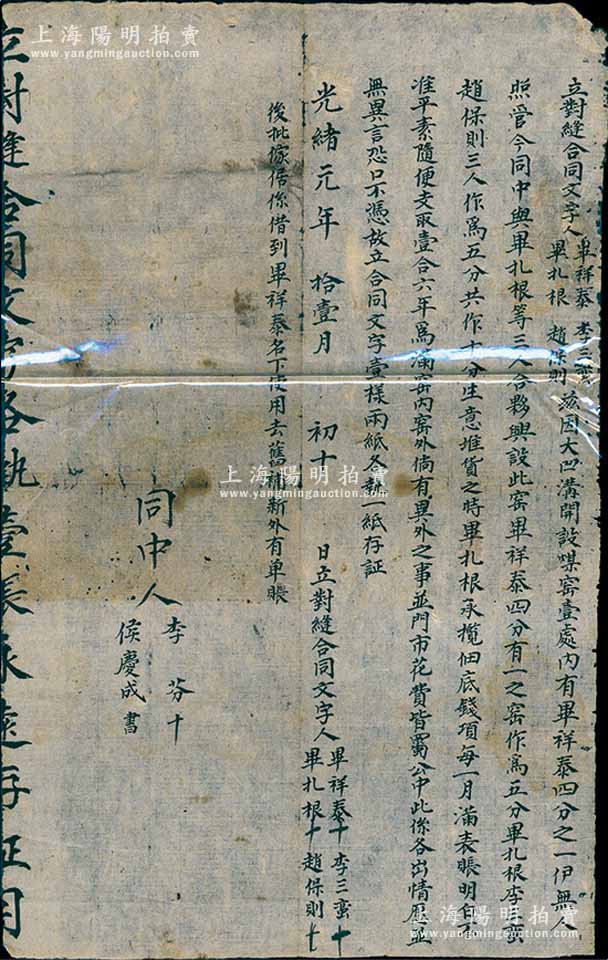 立對縫合同文字人畢祥泰 李三蠻 畢扎根 趙保則 茲因大凹溝開設煤窑壹處內有畢祥泰四分之一伊無人
照管今同中與畢扎根等三人合夥興設此窑畢祥泰四分有一之窑作為五分畢扎根李三蠻
趙保則三人作為五分共作十分生意堆貨之時畢扎根承攬佃底錢項每一月滿表賬明白
准平素隨便支取壹合六年為滿窑內窑外倘有異外之事並門市花費皆蜀公中此係各出情愿並
無異言恐口不憑故立合同文字壹樣兩紙各執一紙存証
光緒元年 拾壹月 初十 日立對縫合同文字人 畢祥泰十 李三蠻十 畢扎根十 趙保則十
後批傢俱係借到畢祥泰名下使用去舊補新外有单賬
同中人 李芬十 侯慶成書
立對縫合同文字各執壹張永遠存証用
上海陽明拍賣
www.yangmingauction.com
上海陽明拍賣
www.yangmingauction.com
上海陽明拍賣
www.yangmingauction.com